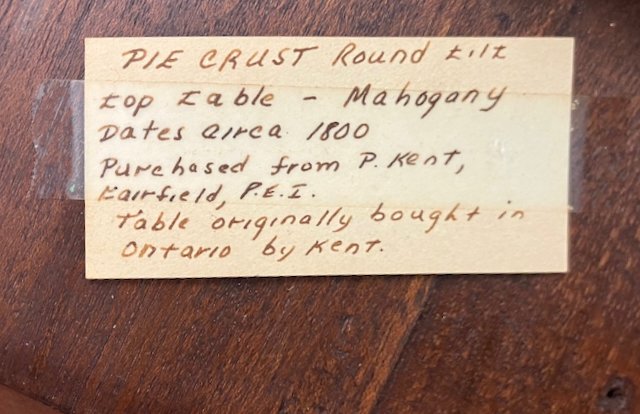 PIE CRUST Round tilt
top table - Mahogany
Dates circa 1800
Purchased from P. Kent,
Fairfield, P.E.I.
Table originally bought in
Ontario by Kent.